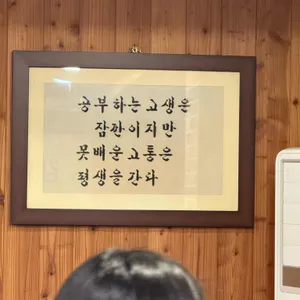 공부하는고생은
잠깐이지만
못배운고통은
평생을간다